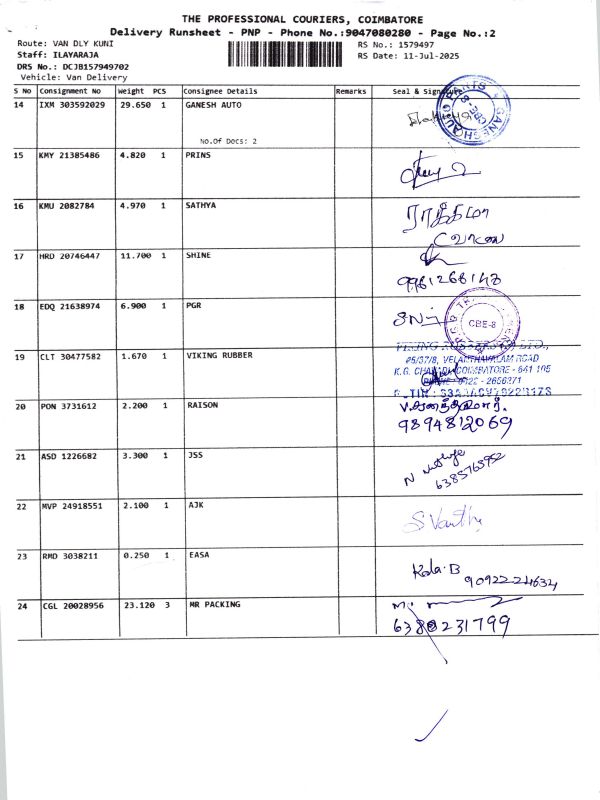 THE PROFESSIONAL COURIERS, COIMBATORE
Delivery Runsheet - PNP - Phone No.:9047080280 - Page No.:2
Route: VAN DLY KUNI RS No.: 1579497
Staff: ILAYARAJA RS Date: 11-Jul-2025
DRS No.: DCJB157949702
Vehicle: Van Delivery
S No Consignment No Weight PCS Consignee Details Remarks Seal & Signature
14 IXM 303592029 29.650 1 GANESH AUTO
CBE-8
No.Of Decs: 2
15 KMY 21385486 4.820 1 PRINS
16 KMU 2082784 4.970 1 SATHYA
17 HRD 20746447 11.700 1 SHINE
18 EDQ 21638974 6.900 1 PGR
CBE-8
19 CLT 30477582 1.670 1 VIKING RUBBER
K.G. CHAVADI, COIMBATORE - 641 105
20 PON 3731612 2.200 1 RAISON
9894812069
21 ASD 1226682 3.300 1 JSS
22 MVP 24918551 2.100 1 AJK
23 RMD 3038211 0.250 1 EASA
Kala.B
24 CGL 20028956 23.120 3 MR PACKING
6380231799